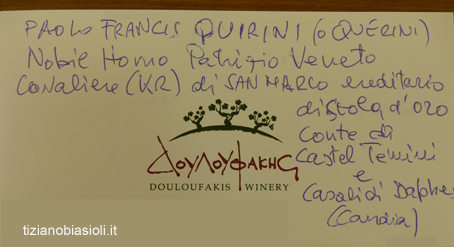 PAOLO FRANCIS QUIRINI (o QUERINI)
Nobile Homo Patrizio Veneto
Cavaliere (KR) di SAN MARCO ereditario
di Stola d'oro
Conte di
Castel Temini
e
Casali di Daphnes
(Candia)
Δουλουφάκης
DOULOUFAKIS WINERY
tizianobiasioli.it